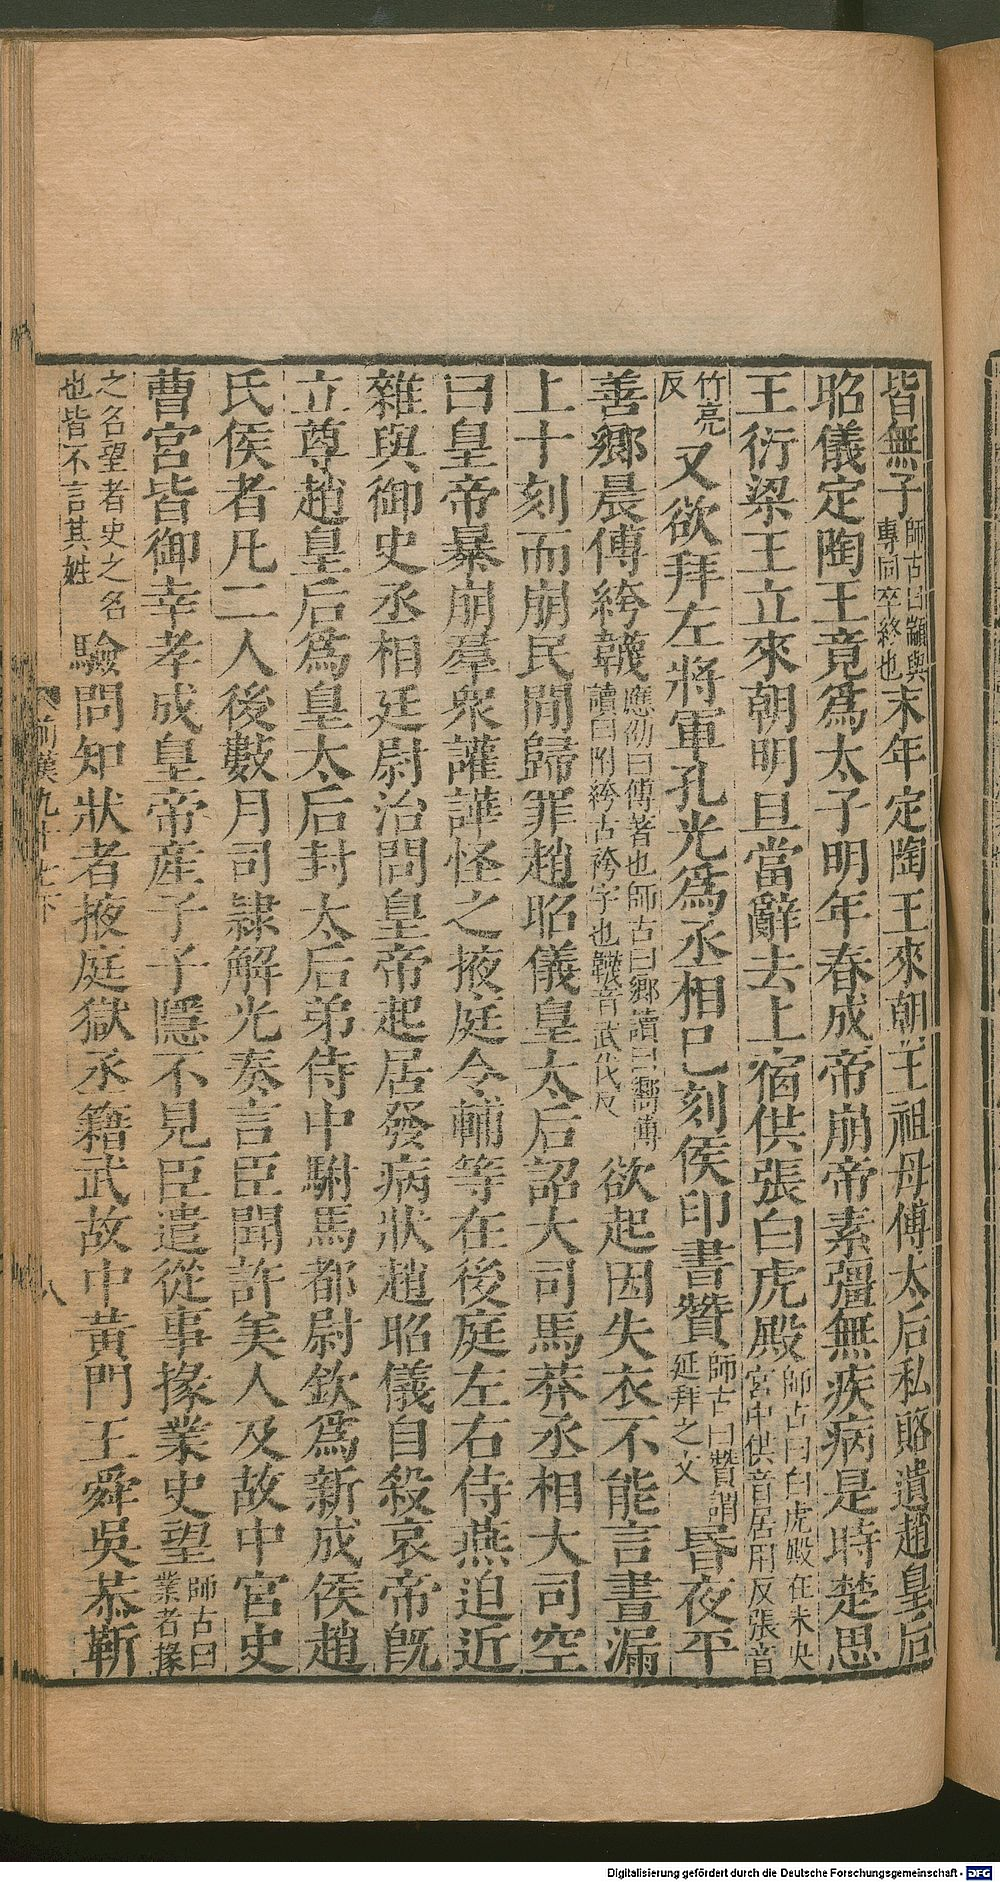 皆無子師古曰顓與專同卒終也末年定陶王來朝王祖母傅太后私賂遺趙皇后
昭儀定陶王竟爲太子明年春成帝崩帝素彊無疾病是時楚思
王衍梁王立來朝明旦當辭去上宿供張白虎殿師古曰白虎殿在未央宮中供音居用反張音
竹亮反又欲拜左將軍孔光爲丞相巳刻侯印書贊師古曰贊謂延拜之文昬夜平
善鄉晨傅絝韈應劭曰傅著也師古曰鄉讀曰嚮傅讀曰附絝古袴字也韈音武伐反欲起因失衣不能言晝漏
上十刻而崩民間歸罪趙昭儀皇太后詔大司馬莽丞相大司空
曰皇帝暴崩羣衆讙譁怪之掖庭令輔等在後庭左右侍燕迫近
雜與御史丞相廷尉治問皇帝起居發病狀趙昭儀自殺哀帝旣
立尊趙皇后爲皇太后封太后弟侍中駙馬都尉欽爲新成侯趙
氏侯者凡二人後數月司隷解光奏言臣聞許美人及故中宮史
曹宮皆御幸孝成皇帝産子子隱不見臣遣從事掾業史望師古曰業者掾
之名望者史之名也皆不言其姓驗問知狀者掖庭獄丞籍武故中黃門王舜吳恭靳
前漢九十七下
八
Digitalisierung gefördert durch die Deutsche Forschungsgemeinschaft - DFG